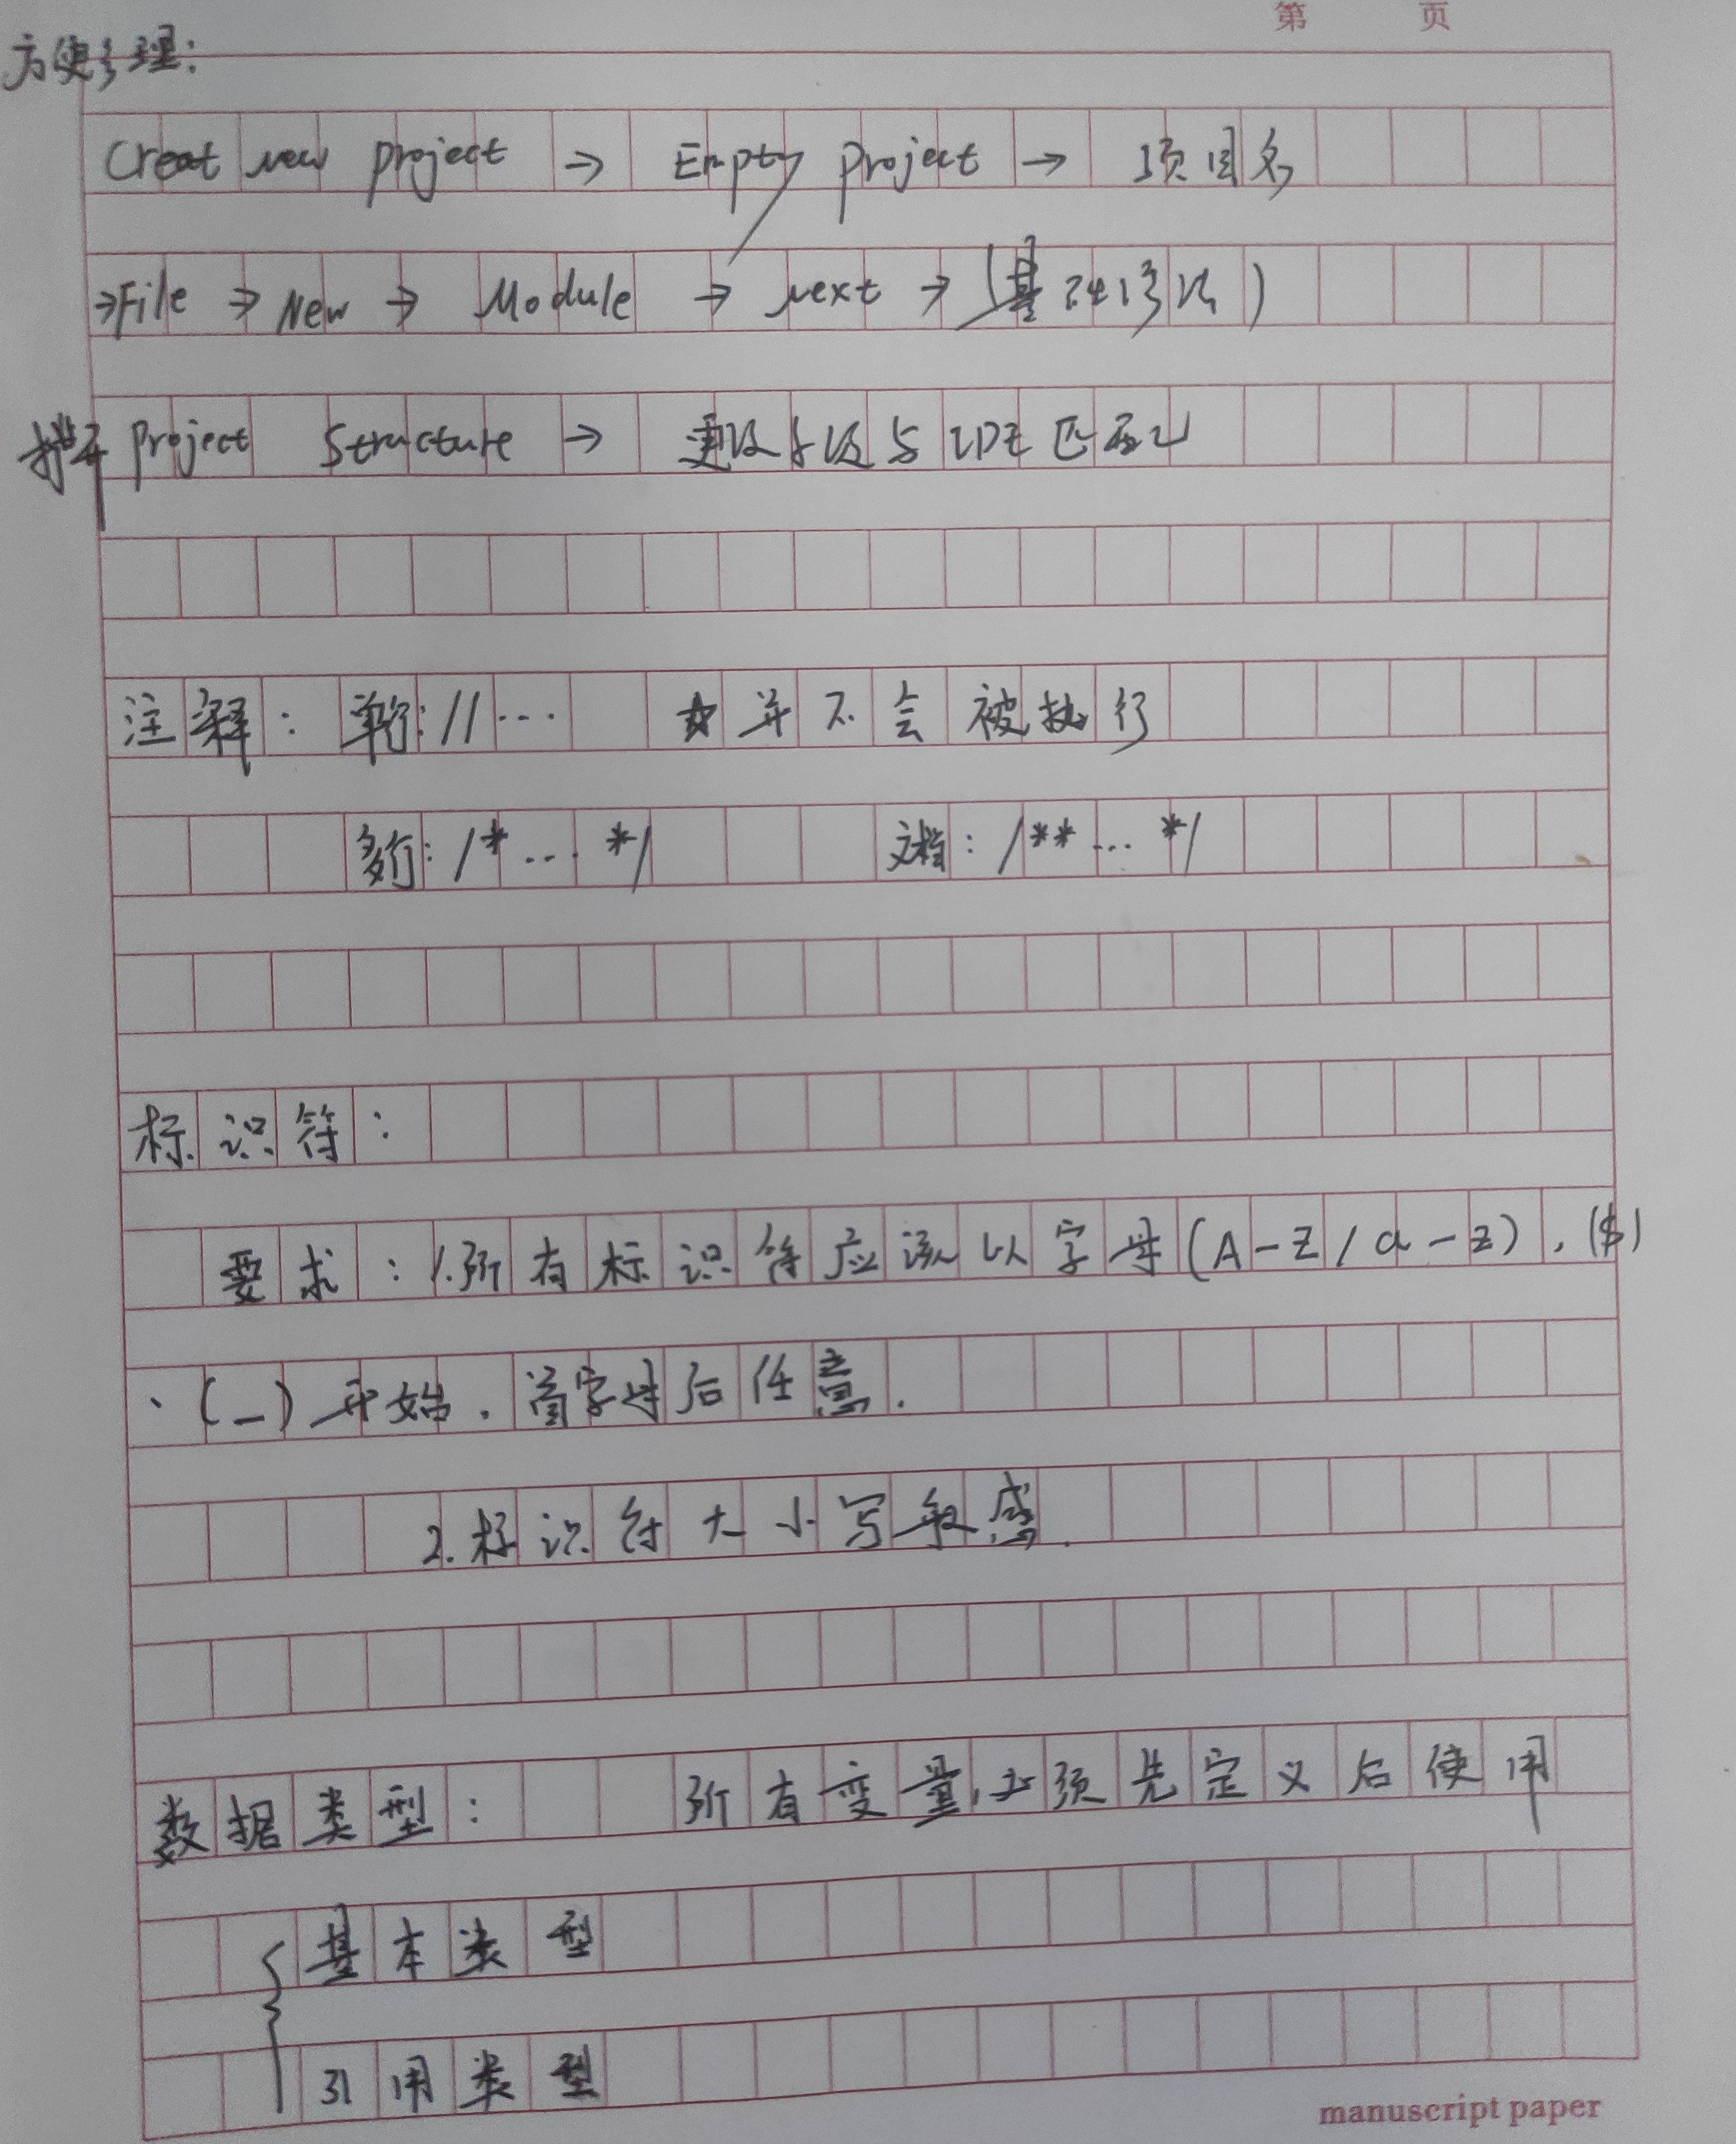 第 页
方便管理:
Creat new project → Empty project → 项目名
→File → New → Module → next → (基础语法)
project Structure → 更改 与 匹配
注释: 单行: //... ☆ 并不会被执行
多行: /* ... */ 文档: /** ... */
标识符:
要求: 1.所有标识符应该以字母(A-Z/a-z), ($)
、(_)开始,首字母后任意.
2.标识符大小写敏感.
数据类型: 所有变量必须先定义后使用
{基本类型
引用类型
manuscript paper